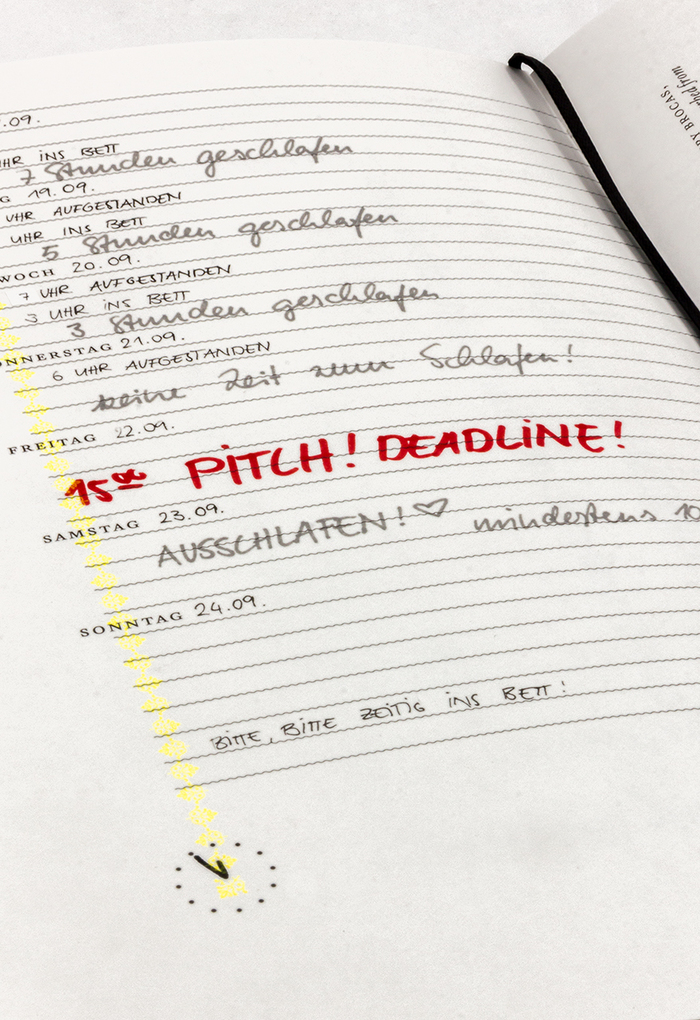 .09.
UHR INS BETT
7 Stunden geschlafen
G 19.09.
UHR AUFGESTANDEN
UHR INS BETT
5 Stunden geschlafen
WOCH 20.09.
7 UHR AUFGESTANDEN
3 UHR INS BETT
3 Stunden geschlafen
NNERSTAG 21.09.
6 UHR AUFGESTANDEN
keine Zeit zum Schlafen!
FREITAG 22.09.
15⁰⁰ PITCH! DEADLINE!
SAMSTAG 23.09.
AUSSCHLAFEN! ♡ mindestens 10
SONNTAG 24.09.
BITTE, BITTE ZEITIG INS BETT!
PY BROCAS,
hed from